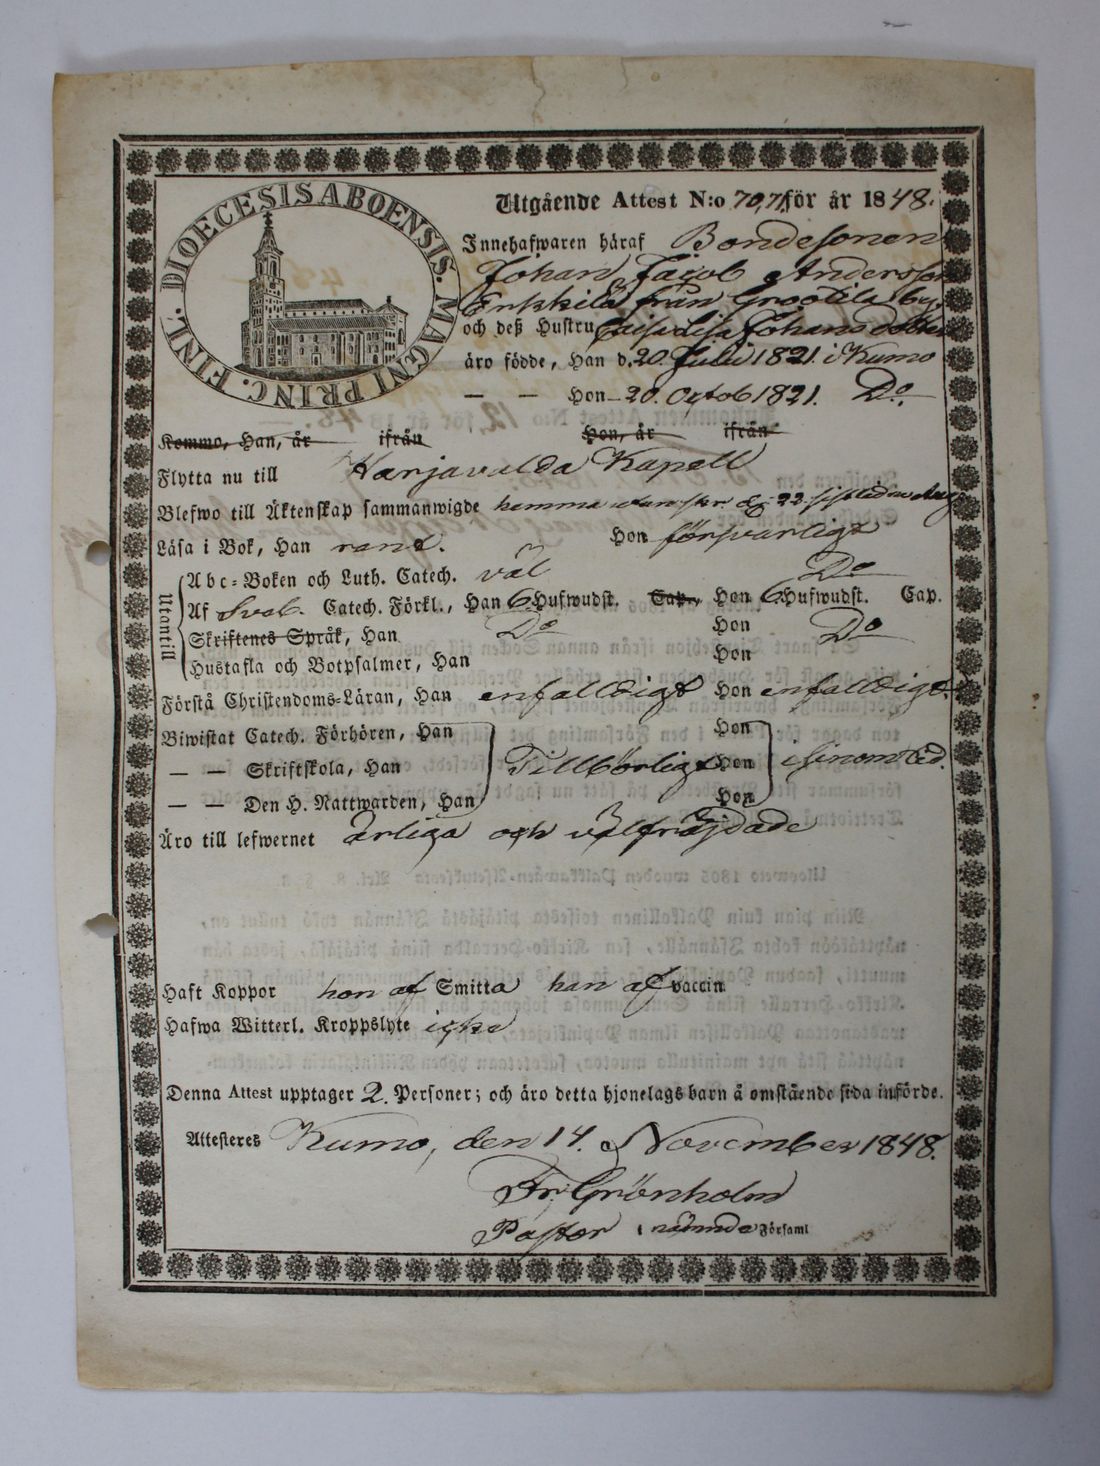 DIOECESIS ABOENSIS. MAGNI PRINC. FINL.
Utgående Attest N:o 70,71 för år 1848.
Innehafwaren häraf Bondesonen
Johan Jacob Andersson
Erkkilä från Grootila by
och deß Hustru Caisa Lisa Johans dotter
äro födde, Han d. 20. Julii 1821. i Kumo
— — Hon 20. Octob 1821. Do.
Kommo, Han, år ifrån Hon, år ifrån
Flytta nu till Harjavalda Kapell
Blefwo till Äktenskap sammanwigde hemma 22 sistledne Aug
Läsa i Bok, Han rent. Hon försvarligt
Utantill
Abc-Boken och Luth. Catech. väl Do
Af Sveb. Catech. Förkl., Han 6 Hufwudst. Cap., Hon 6 Hufwudst. Cap.
Skriftenes Språk, Han Do Hon Do
Hustafla och Botpsalmer, Han Hon
Förstå Christendoms-Läran, Han enfalldigt Hon enfalldigt.
Biwistat Catech. Förhören, Han Hon
— — Skriftskola, Han Tillbörligt Hon i sinom tid.
— — Den H. Nattwarden, Han Hon
Äro till lefwernet ärliga och välfräjdade
Haft Koppor hon af Smitta han af vaccin
Hafwa Witterl. Kroppslyte icke
Denna Attest upptager 2. Personer; och äro detta hjonelags barn å omstående sida införde.
Attesteres Kumo, den 14. November 1848.
Fr. Grönholm
Pastor i nämnde Församl